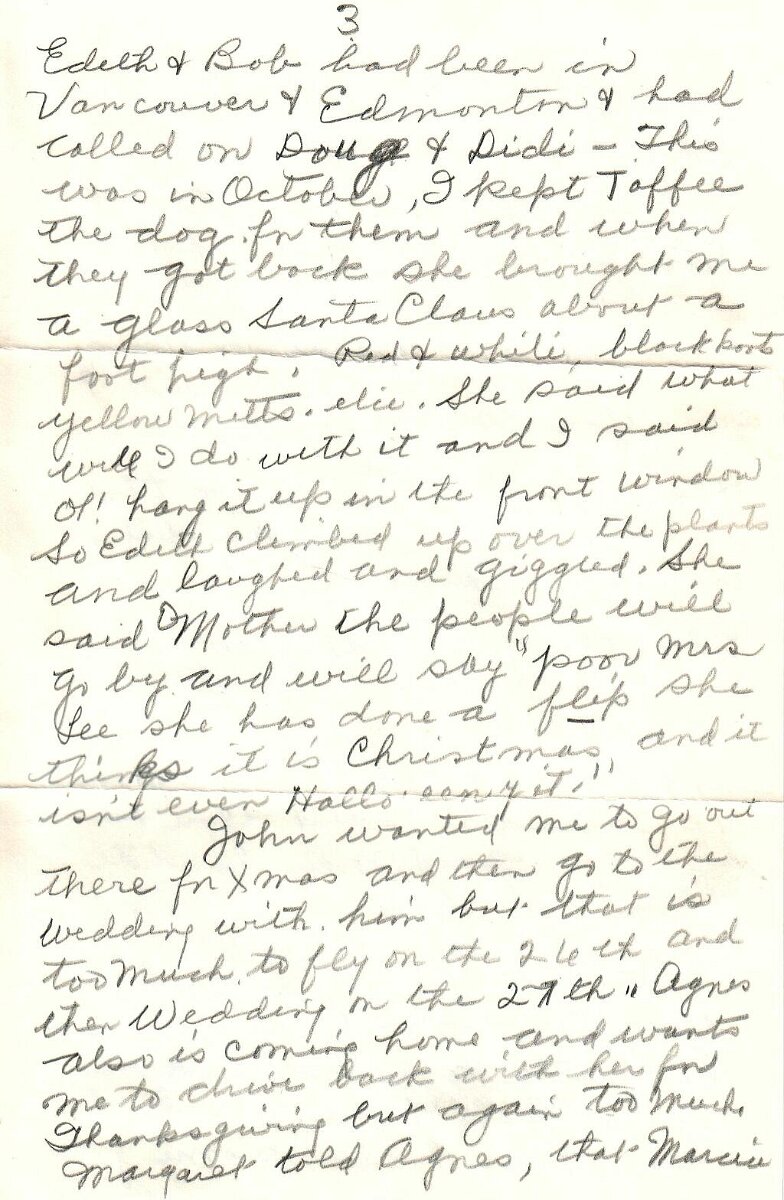 3
Edith & Bob had been in
Vancouver & Edmonton & had
called on Doug & Didi - This
was in October, I kept Toffee
the dog. for them and when
they got back she brought me
a glass Santa Claus about a
foot high. Red & white, black boots
yellow mitts. etc. She said what
will I do with it and I said
O! hang it up in the front window
So Edith climbed up over the plants
and laughed and giggled. She
said "Mother the people will
go by and will say "poor Mrs
Lee she has done a flip she
thinks it is Christmas, and it
isn't even Hallo'een yet."
John wanted me to go out
there for Xmas and then go to the
Wedding with him but that is
too much. to fly on the 26th and
then Wedding on the 27th" Agnes
also is coming home and wants
me to drive back with her for
Thanksgiving but again too much.
Margaret told Agnes, that Marcie